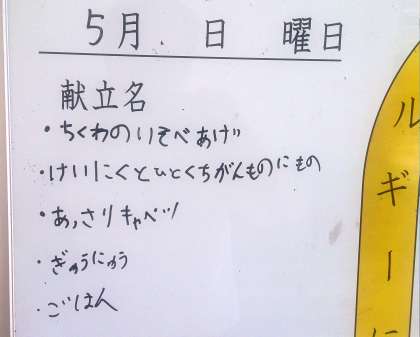 5月 日 曜日
献立名
・ちくわのいそべあげ
・けいにくとひとくちがんものにもの
・あっさりキャベツ
・ぎゅうにゅう
・ごはん
ルギーに